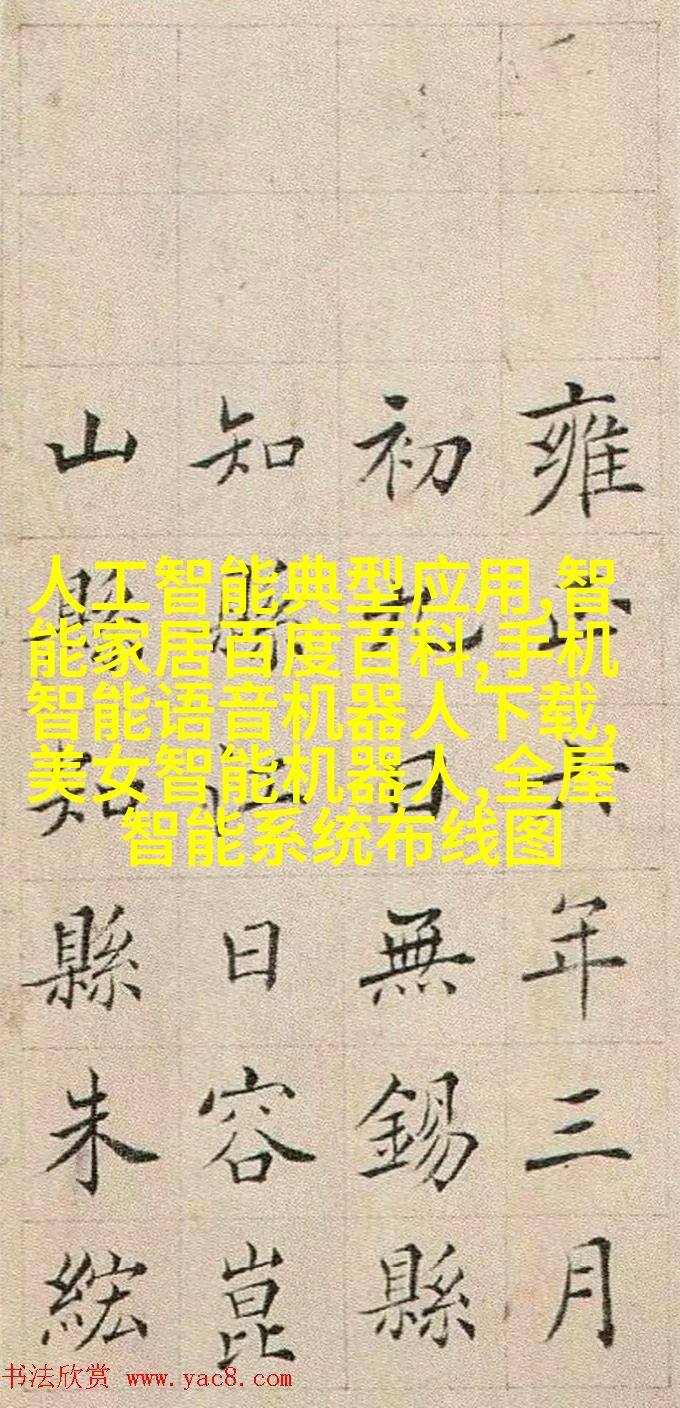 雍正六年三月
初九日無錫縣
知縣江日容崑
山縣知縣朱綋
人工智能典型应用,智
能家居百度百科,手机
智能语音机器人下载,
美女智能机器人,全屋
智能系统布线图
书法欣赏 www.yac8.com